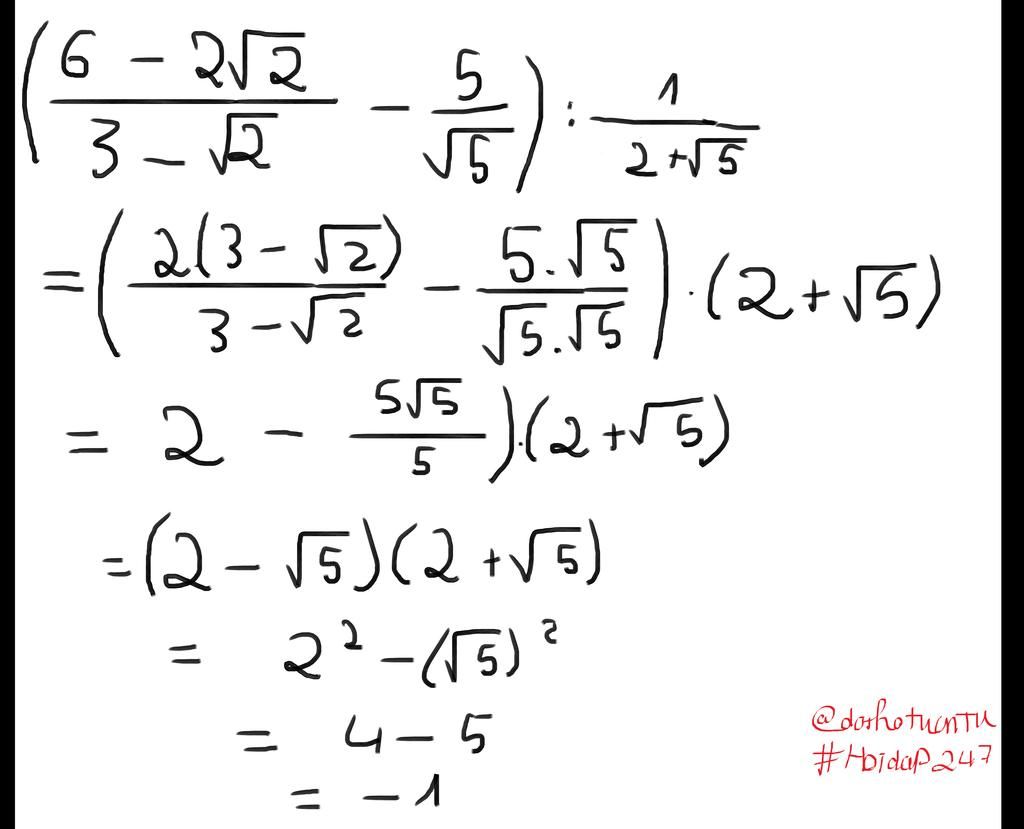 (6 - 2√2 / 3 - √2 - 5 / √5) : 1 / 2 + √5
= (2(3 - √2) / 3 - √2 - 5.√5 / √5.√5) . (2 + √5)
= 2 - 5√5 / 5) . (2 + √5)
= (2 - √5)(2 + √5)
= 2² - (√5)²
= 4 - 5
= - 1
#Hoidap247